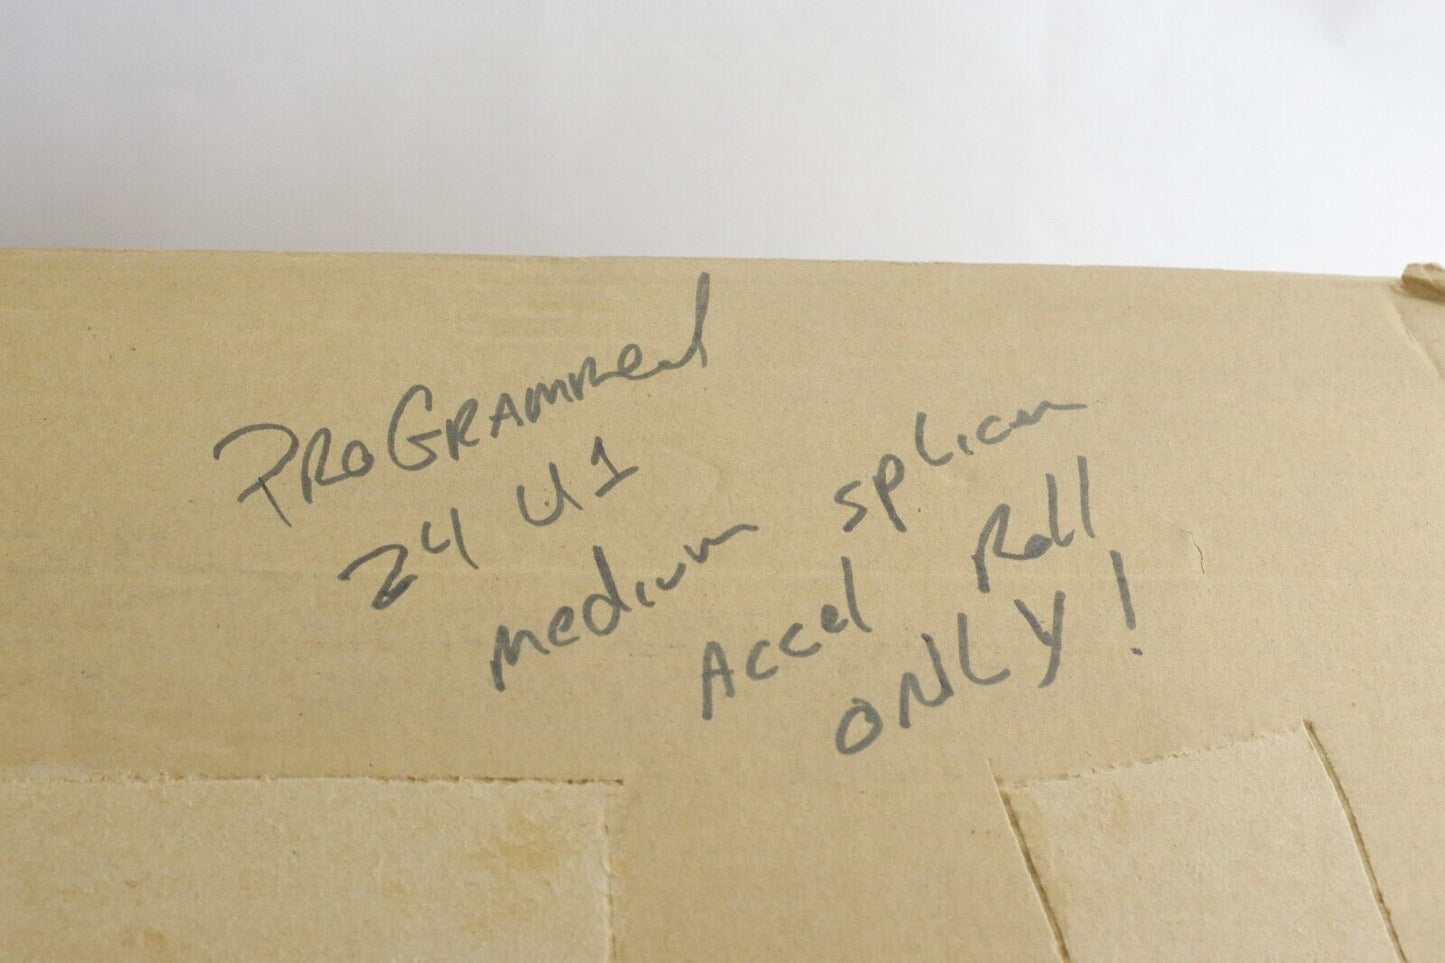 PROGRAMMED
24 U1
medium splicer
Accel Roll
ONLY!